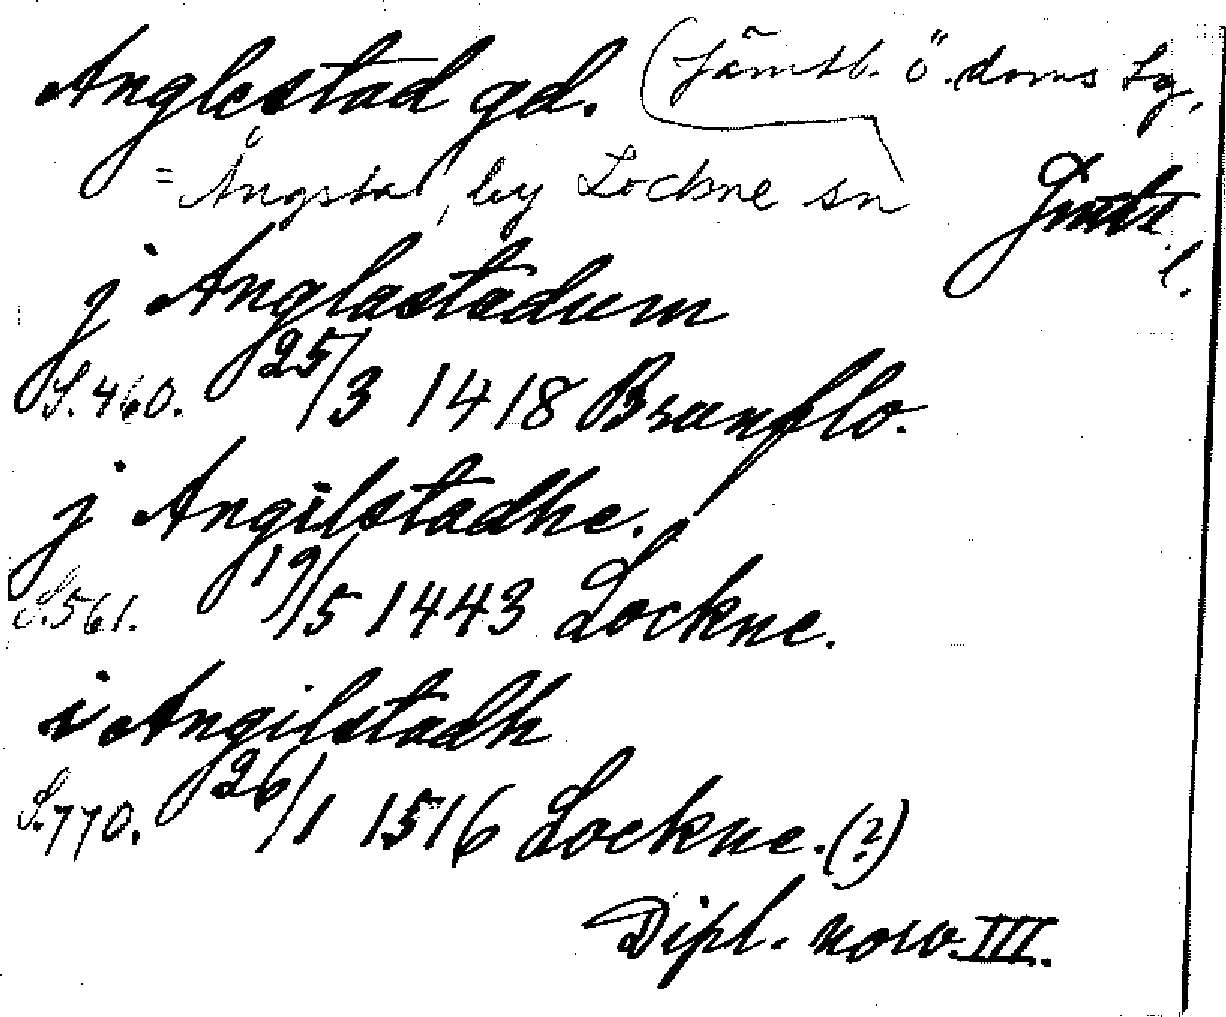 Anglestad gd. (Jämtl. ö. doms lg,
= Ångsta, by Lockne sn Jmtl.
j Anglastadum
S. 460. 25/3 1418 Brunflo.
j Angilstadhe.
S. 561. 19/5 1443 Lockne.
i Angilstadh
S. 770. 26/1 1516 Lockne. (?)
Dipl. norv. III.